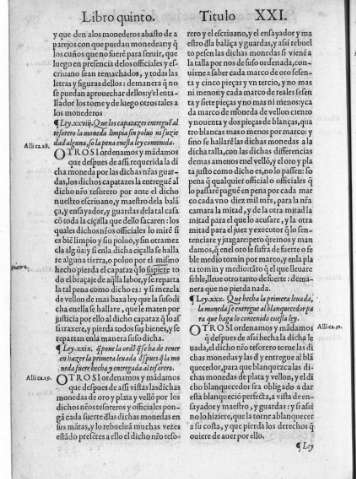 Libro quinto. Titulo XXI.
y que den alos monederos abasto de a
parejos con que puedan monedear y q̃
los cuños que no fuerẽ para seruir, que
luego en presencia delos officiales y es-
criuano sean remachados, y todas las
letras y figuras dellos: de manera q̃ no
se puedan aprouechar dellos: y el enta-
llador los tome y de luego otros tales a
los monederos
¶ Ley.xxviij. Que los capatazes entreguẽ al
tesorero la moneda limpia sin poluo ni suzie
dad alguna, so la pena en esta ley contenida.
Alli ca.28.
OTROSI ordenamos y mãdamos
que despues de assi requerida la di
cha moneda por las dichas nr̃as guar-
das, los dichos capatazes la entreguẽ al
dicho nr̃o tesorero por ante el dicho
nuestro escriuano, y maestro dela balã
ça, y ensayador, y guardas dela tal casa
cõ toda la ciçalla que dello sacaren: los
quales dichos nr̃os officiales lo mirẽ si
es biẽ limpio y su poluo, y sin otra mez
cla algũa y si enla dicha ciçalla se halla
re alguna tierra, o poluo por el mismo
hecho pierda el capataz q̃ lo supiere to
do el bracaje de aq̃lla labor, y se reparta
la tal pena como dicho es: y si mezcla
de vellon de mas baxa ley que la suso di
cha en ella se hallare, que le maten por
justicia por ello al dicho capataz q̃ lo as
si traxere, y pierda todos sus bienes, y se
repartan enla manera suso dicha.
¶ Ley.xxix. Pone la orden q̃ se ha de tener
en hazer la primera leuada despues q̃ la mo
neda fuere hecha y entregada al tesorero.
Alli ca.29.
OTROSI ordenamos y mãdamos
que despues de assi vistas las dichas
monedas de oro y plata y vellõ por los
dichos nr̃os tesoreros y officiales pon-
gã cada suerte dlas dichas monedas en
sus mãtas, y lo rebueluã muchas vezes
estãdo presentes a ello el dicho nr̃o teso-
rero y el escriuano, y el ensayador y ma
estro dla balãça y guardas, y assi rebuel
to pesen las dichas monedas si vienẽ a
la talla por nos de suso ordenada, con-
uiene a saber cada marco de oro sesen-
ta y cinco pieças y vn tercio, y no mas
ni menos: y cada marco de reales sesen
ta y siete pieças y no mas ni menos: y ca
da marco de menuda de vellon ciento
y nouenta y dos pieças de blancas, qua
tro blancas mas o menos por marco: y
sino se hallarẽ las dichas monedas a la
dicha talla, con las dichas differencias
demas a menos enel vellõ, y el oro y pla
ta justo como dicho es, no lo passen: so
pena q̃ qualquier official o officiales q̃
lo passarẽ paguẽ en pena por cada mar
co cada vno diez mil mrs̃, para la nr̃a
camara la mitad, y de la otra mitad la
mitad para el que lo acusare, y la otra
mitad para el juez y executor q̃ lo sen-
tenciare y juzgare: pero q̃remos y man
damos, q̃ enel oro le sufra de fuerte o fe
ble medio tomin por marco, y enla pla
ta tomin y medio: assi q̃ el que lleuare
feble, lleue otro tanto de fuerte: de ma-
nera que no pierda nada.
¶ Ley.xxx. Que hecha la primera leuada,
la moneda se entregue al blanquecedor pa
ra que haga lo contenido en esta ley.
OTROSI ordenamos y mãdamos
Alli ca.30.
q̃ despues de assi hecha la dicha le
uada, el dicho nr̃o tesorero tome las di
chas monedas y las dẽ y entregue al blã
quecedor, para que blanquezca las di-
chas monedas de plata y vellon, y el di
cho blanquecedor sea obligado a dar
esta blanqueciõ perfecta, a vista de en-
sayador y maestro, y guardas: y si assi
no lo hiziere, que la torne ablanquecer
a su costa, y que pierda los derechos q̃
ouiere de auer por ello.
¶ Ley